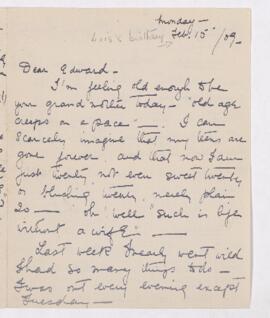 Monday —
Lois's birthday
Feb. 15th/09.
Dear Edward —
I'm feeling old enough to be
your grandmother today — "old age
creeps on a pace" — I can
scarcely imagine that my teens are
gone forever and that now I am
just twenty, not even sweet twenty
or blushing twenty, merely plain
20 — oh well "Such is life
without a wife" —
Last week I nearly went wild
I had so many things to do —
I was out every evening except
Tuesday —